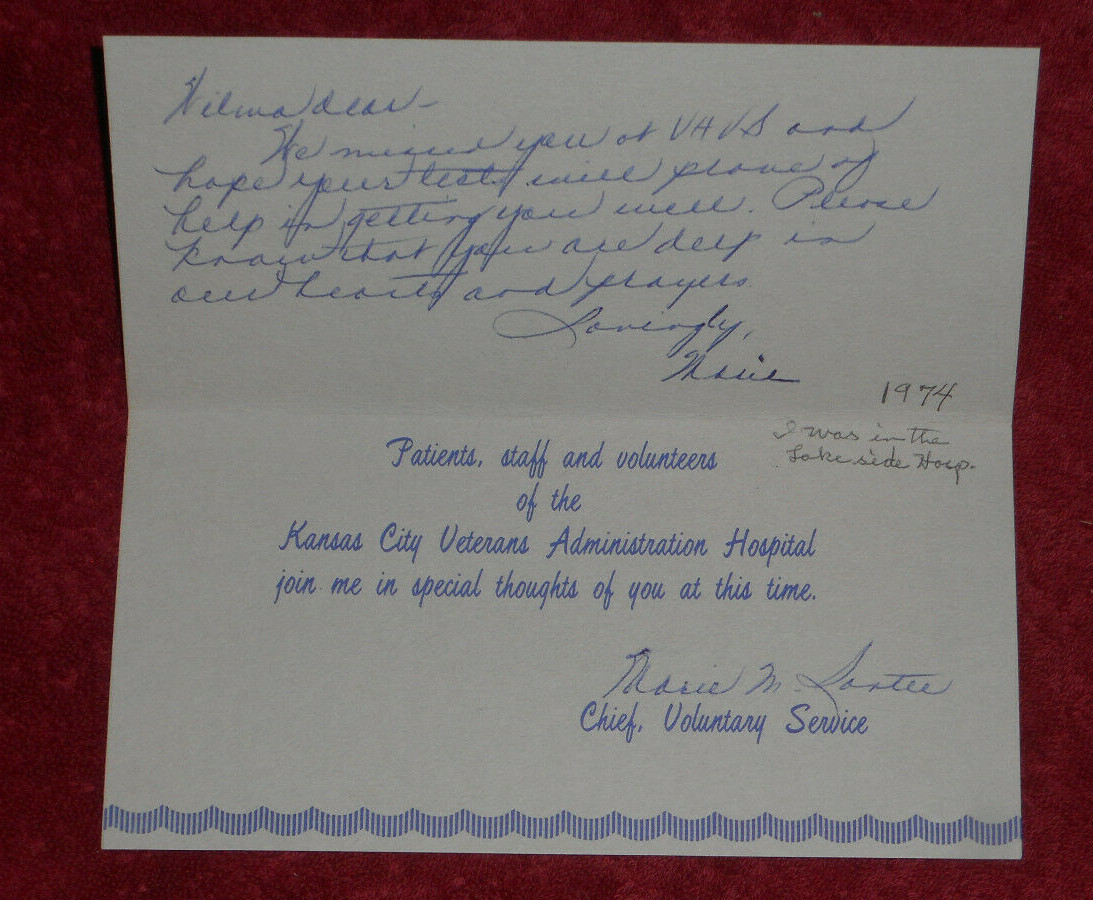 Wilma dear -
We missed you at VAVS and
hope your tests will prove of
help in getting you well. Please
know that you are deep in
our hearts and prayers.
Lovingly,
Marie
1974
I was in the
Lakeside Hosp.
Patients, staff and volunteers
of the
Kansas City Veterans Administration Hospital
join me in special thoughts of you at this time.
Marie M.
Chief, Voluntary Service